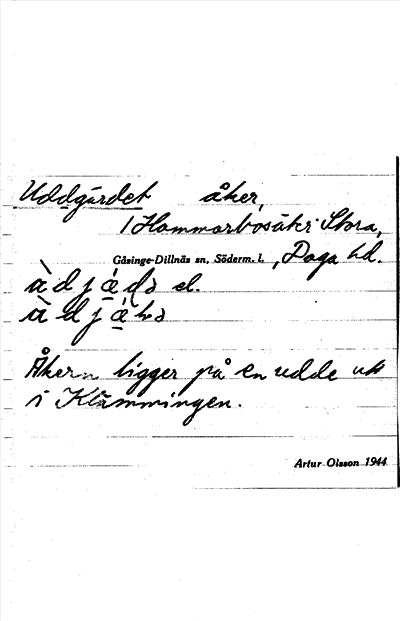 Uddgärdet åker,
1 Hammarbosäter Stora,
Gåsinge-Dillnäs sn, Söderm. l., Daga hd.
el.
Åkern ligger på en udde ut
i Klämmingen.
Artur Olsson 1944